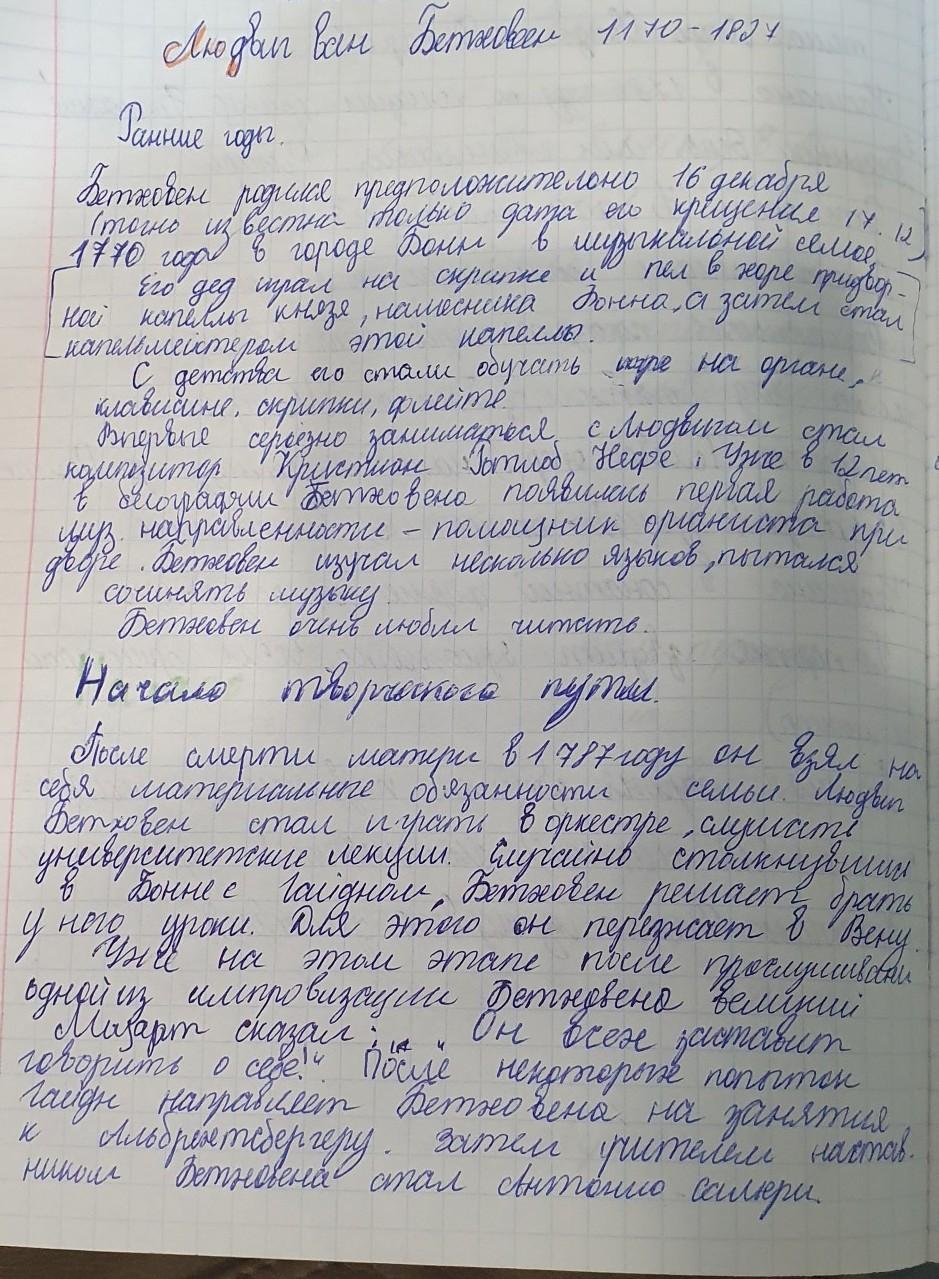 Людвиг ван Бетховен 1170-1827
Ранние годы.
Бетховен родился предположительно 16 декабря
(точно известна только дата его крещения 17.12)
1770 года в городе Бонн в музыкальной семье.
Его дед играл на скрипке и пел в хоре придвор-
ной капеллы князя, намесника Бонна, а затем стал
капельмейстером этой капеллы.
С детства его стали обучать игре на органе,
клависине, скрипки, флейте.
Впервые серьезно заниматься с Людвигом стал
композитор Кристиан Готлоб Нефе. Уже в 12 лет
в биографии Бетховена появилась первая работа
муз. направленности – помощник органиста при
дворе. Бетховен изучал несколько языков, пытался
сочинять музыку.
Бетховен очень любил читать.
Начало творческого пути.
После смерти матери в 1787 году он взял на
себя материальные обязанности семьи. Людвиг
Бетховен стал играть в оркестре, слушать
университетские лекции. Случайно столкнувшись
в Бонне с Гайдном, Бетховен решает брать
у него уроки. Для этого он переезжает в Вену.
Уже на этом этапе после прослушивания
одной из импровизации Бетховена великий
Мозарт сказал: „Он всех заставит
говорить о себе!" После некоторых попыток
Гайдн направляет Бетховена на занятия
к Альбрехтсбергеру. Затем учителем настав-
ником Бетховена стал Антонио Салюри.